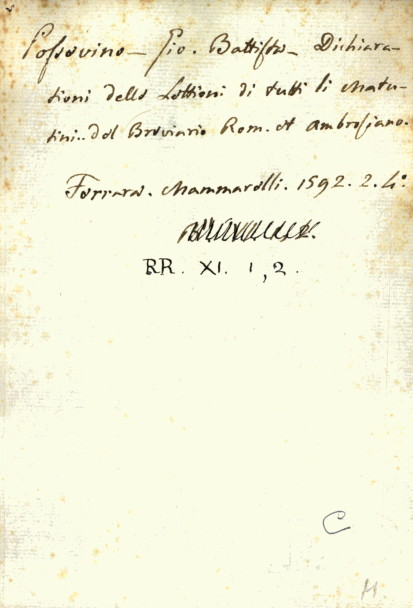 Possovino_ Gio. Battista_ Dichiara-
zioni delle Lettioni di tutti li Matu-
tini.. del Breviario Rom. et Ambrosiano.
Ferrara. Mammarelli. 1592. 2. 4º
RR. XI. 1, 2.
C